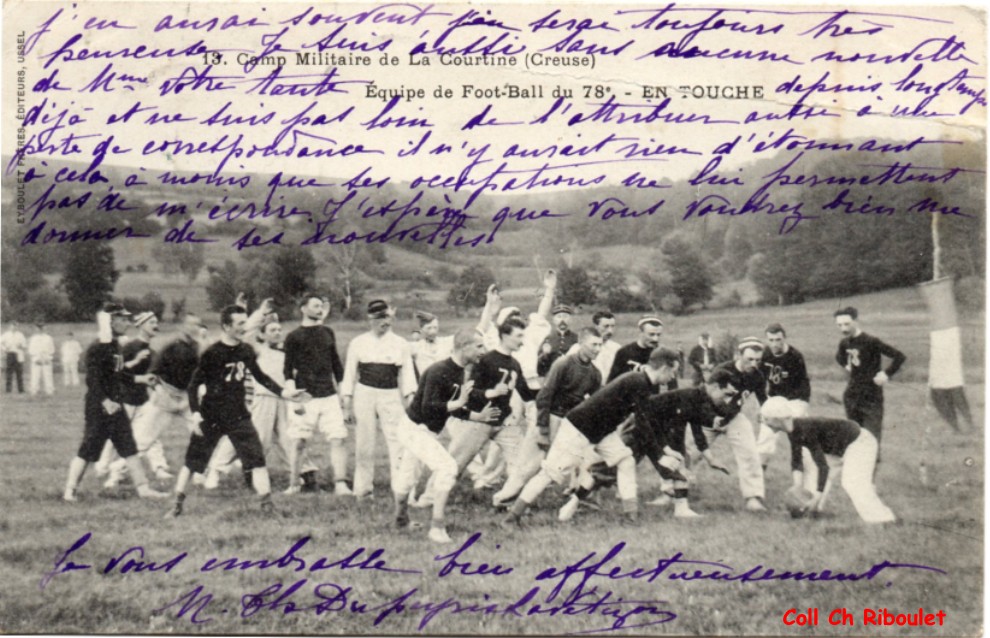 j'en aurai souvent j'en serai toujours très
heureuse. Je suis aussi sans aucune nouvelle
13. Camp Militaire de La Courtine (Creuse)
de Mme votre tante depuis longtemps
Équipe de Foot-Ball du 78e. - EN TOUCHE
déjà et ne suis pas loin de l'attribuer aussi à une
perte de correspondance il n'y aurait rien d'étonnant
à cela à moins que ses occupations ne lui permettent
pas de m'écrire. J'espère que vous voudrez bien me
donner de ses nouvelles.
EYBOULET FRÈRES, ÉDITEURS, USSEL
78
78
78
78
Je vous embrasse bien affectueusement.
Coll Ch Riboulet